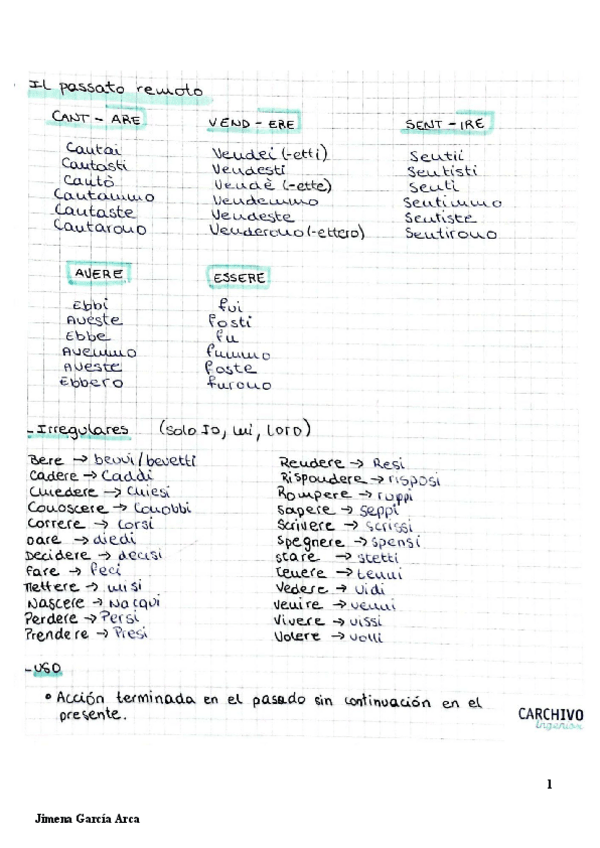 Il passato remoto
CANT - ARE VEND - ERE SENT - IRE
Cantai Vendei (-etti) Sentii
Cantasti Vendesti Sentisti
Cantò Vendè (-ette) Sentì
Cantammo Vendemmo Sentimmo
Cantaste Vendeste Sentiste
Cantarono Venderono (-ettero) Sentirono
AVERE ESSERE
Ebbi fui
Aveste fosti
Ebbe fu
Avemmo fummo
Aveste foste
Ebbero furono
- Irregulares (solo Io, lui, loro)
Bere → bevvi/bevetti Rendere → Resi
Cadere → Caddi Rispondere → risposi
Chiedere → chiesi Rompere → ruppi
Conoscere → Conobbi Sapere → seppi
Correre → Corsi Scrivere → scrissi
Dare → diedi Spegnere → spensi
Decidere → decisi stare → stetti
Fare → feci Tenere → tenni
Mettere → misi Vedere → vidi
Nascere → Nacqui Venire → venni
Perdere → Persi Vivere → vissi
Prendere → Presi Volere → volli
- USO
• Acción terminada en el pasado sin continuación en el
presente.
CARCHIVO
Ingenios
1
Jimena García Arca